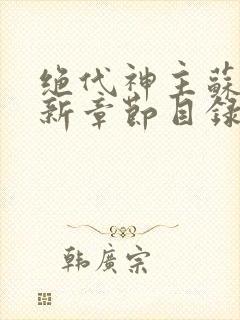 绝代神主蘇
新章節目錄
韩廣宗